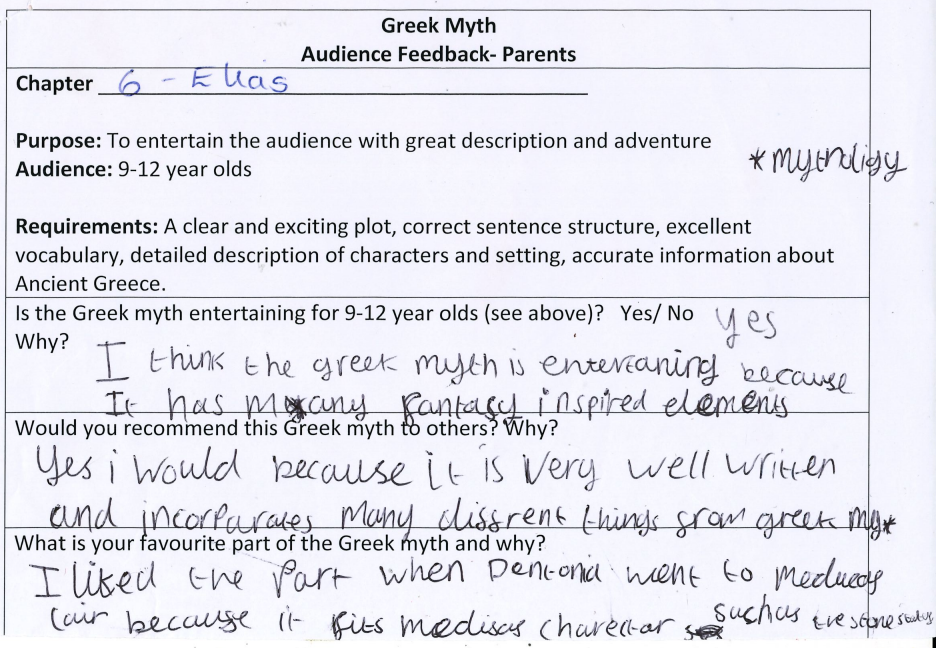 Greek Myth
Audience Feedback- Parents
Chapter 6 - Elias
Purpose: To entertain the audience with great description and adventure
Audience: 9-12 year olds
*mythologiy
Requirements: A clear and exciting plot, correct sentence structure, excellent
vocabulary, detailed description of characters and setting, accurate information about
Ancient Greece.
Is the Greek myth entertaining for 9-12 year olds (see above)? Yes/ No yes
Why?
I think the greek myth is entertaning because
It has many fantasy inspired elements
Would you recommend this Greek myth to others? Why?
Yes i would because it is very well written
and incorparates many diffrent things from greek my*
What is your favourite part of the Greek myth and why?
I liked the part when went to
lair because it fits medisas charectar such as the stone